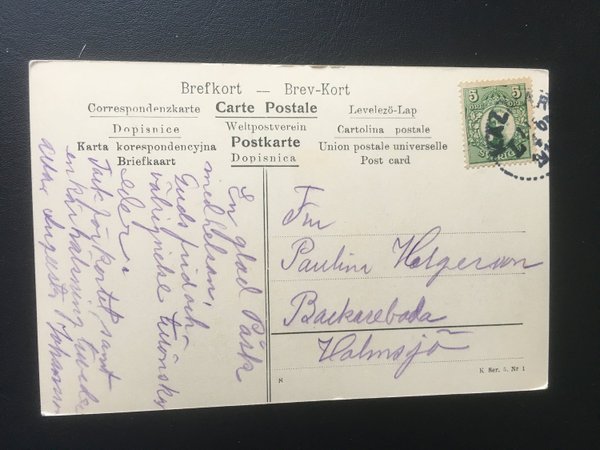 Brefkort — Brev-Kort
Correspondenzkarte Carte Postale Levelező-Lap
Dopisnice Weltpostverein Cartolina postale
Karta korespondencyjna Postkarte Union postale universelle
Briefkaart Dopisnica Post card
5 5
En glad Påsk
med helsan,
Guds frid och
tillönskas
eder.
Tack för kortet, samt
en kär hälsning
Augusta
Fru
Paulina Helgesson
Backaseboda
Holmsjö
8
K. Ser. 5, Nr 1